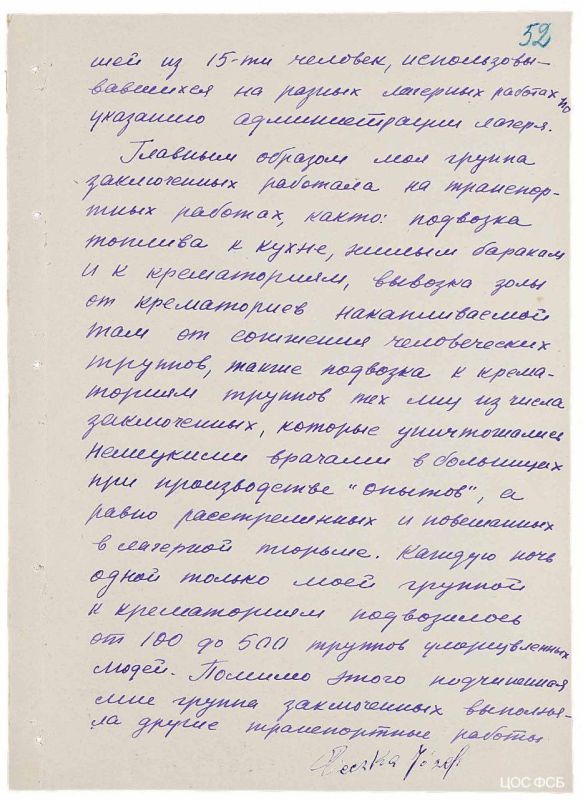 52
шей из 15-ти человек, использовы-
вавшихся на разных лагерных работах по
указанию администрации лагеря.
Главным образом моя группа
заключенных работала на транспор-
тных работах, както: подвозка
топлива к кухне, жилым баракам
и к крематориям, вывозка золы
от крематориев накапливаемой
там от сожжения человеческих
труппов, также подвозка к крема-
ториям труппов тех лиц из числа
заключенных, которые уничтожались
немецкими врачами в больницах
при производстве "опытов", а
равно расстрелянных и повешанных
в лагерной тюрьме. Каждую ночь
одной только моей группой
к крематориям подвозилось
от 100 до 500 труппов умерщвленных
людей. Помимо этого подчиненная
мне группа заключенных выполня-
ла другие транспортные работы
Józef
ЦОС ФСБ